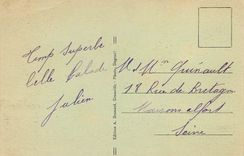 Temp Superbe
belle Balade
Julien
M & Mme Guinault
18 Rue de Bretagne
Maisons Alfort
Seine